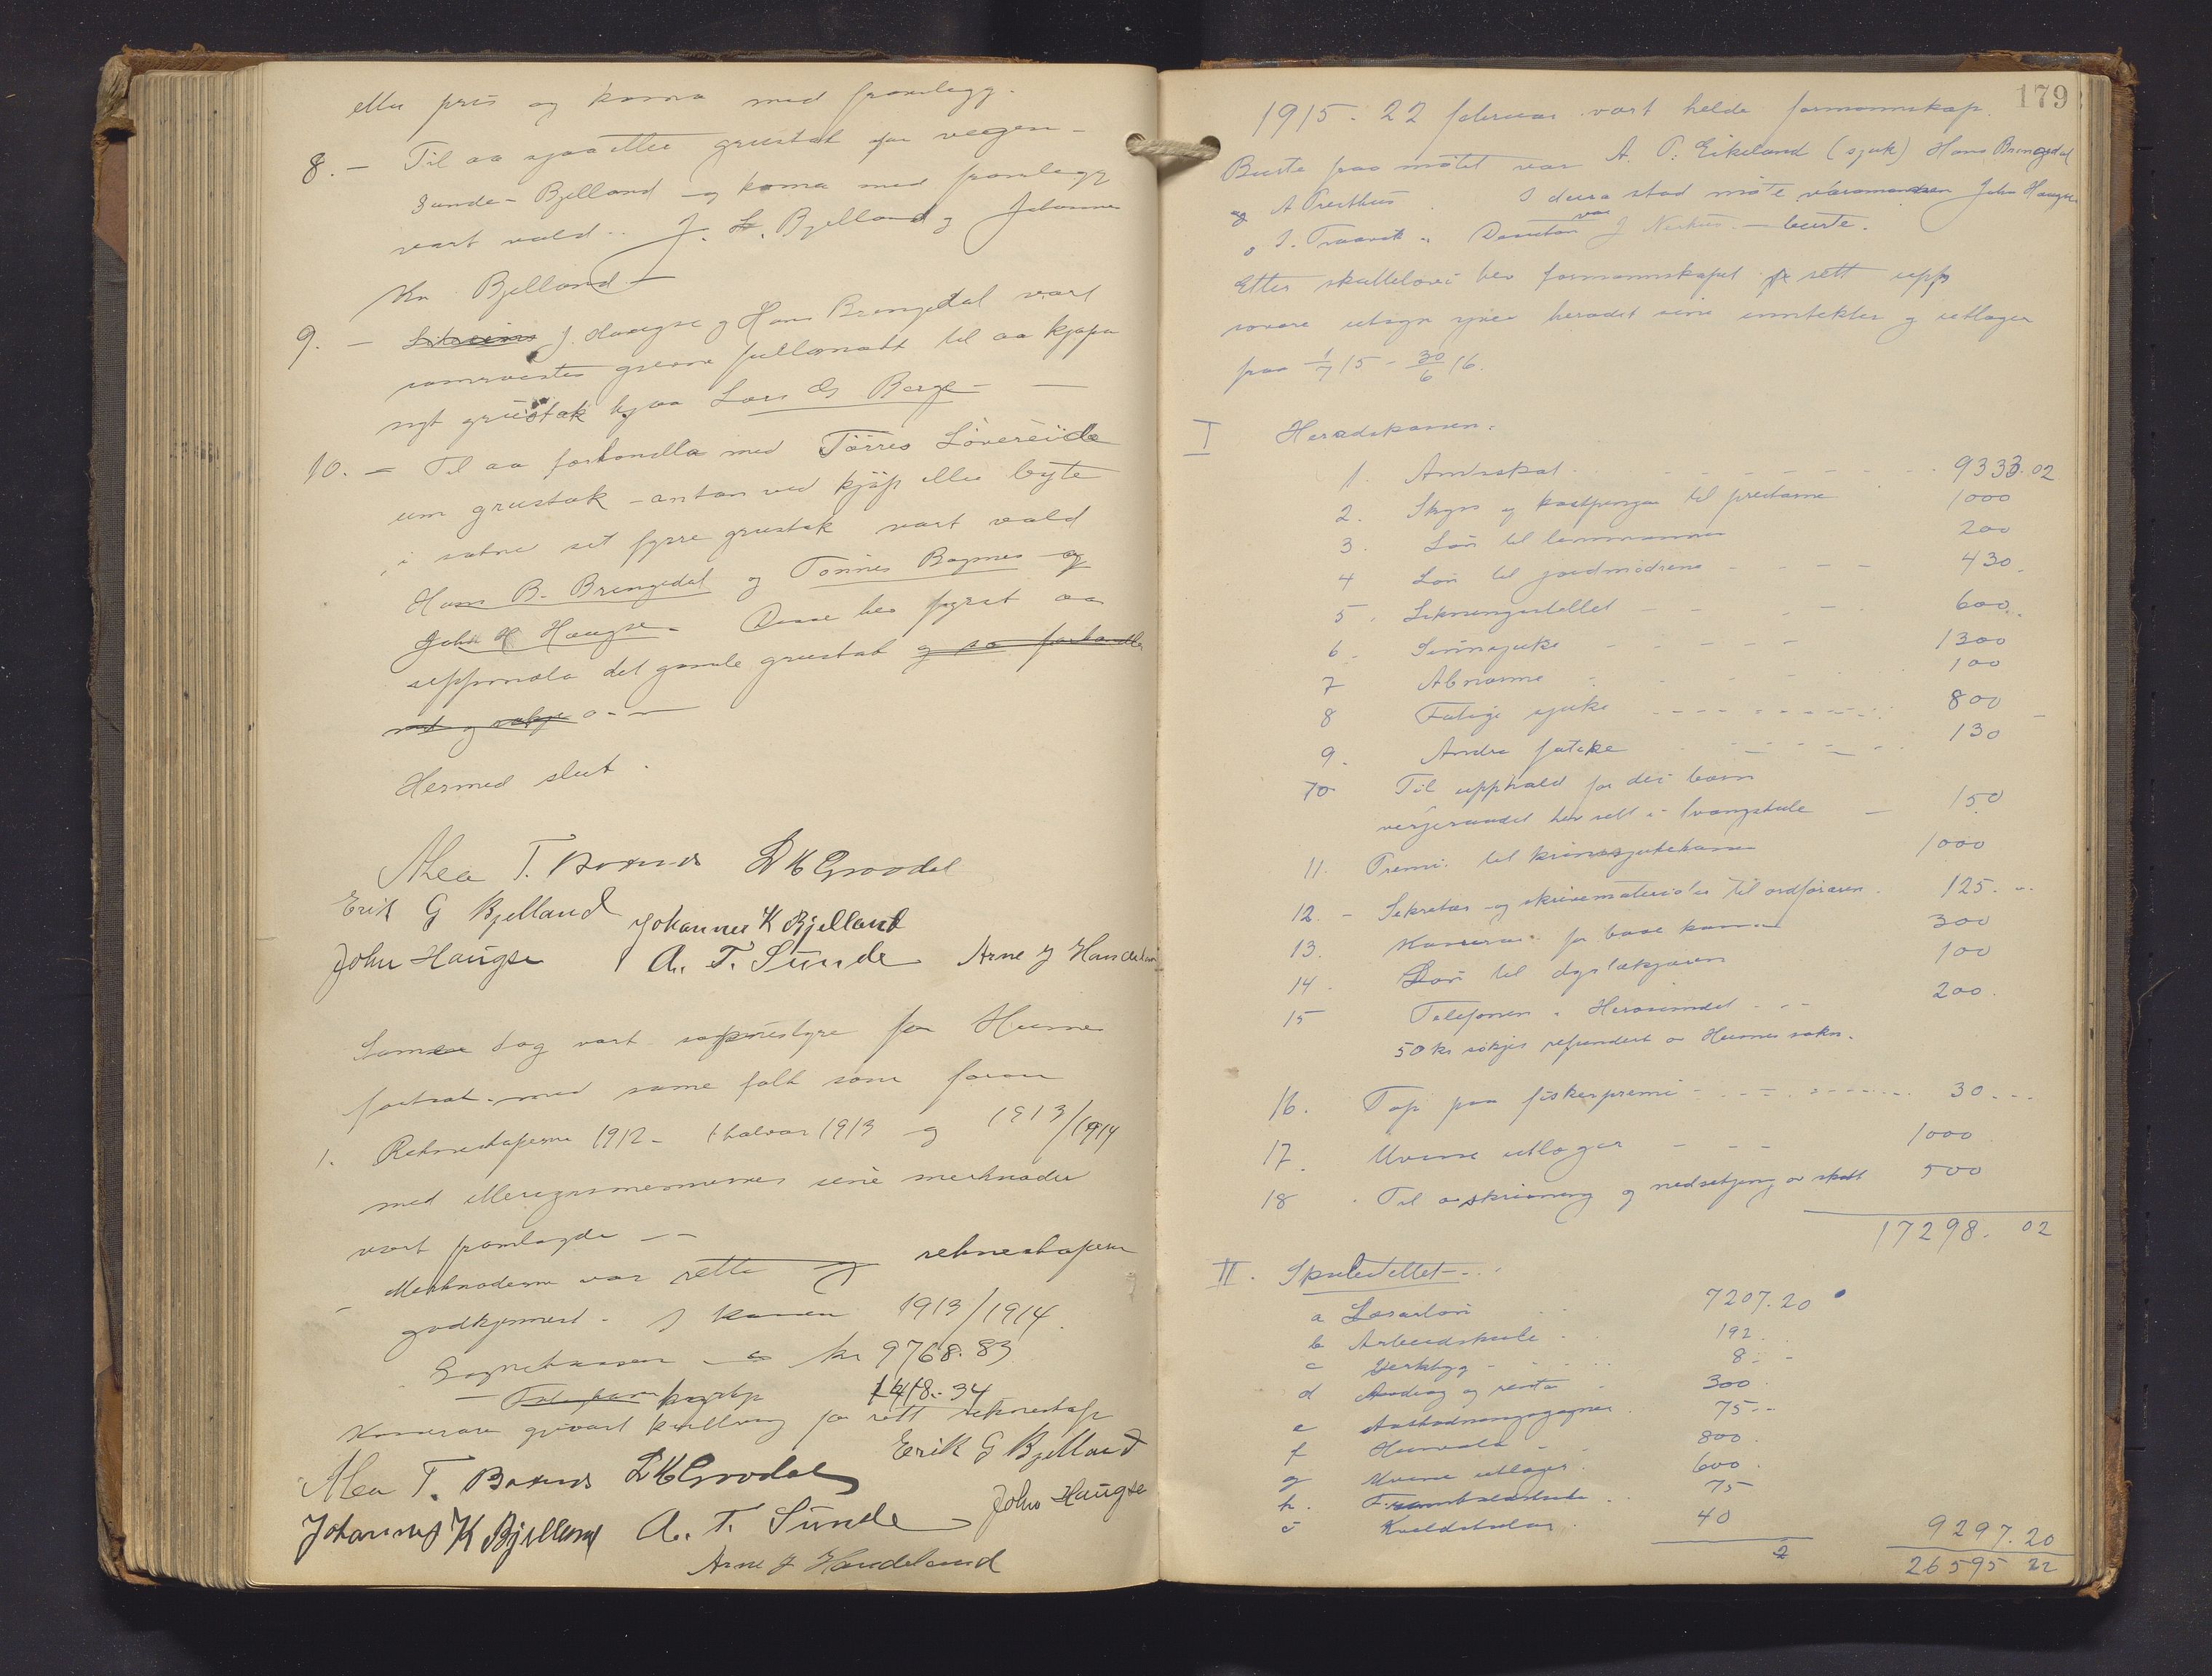 eller pris og koma med framlegg.
8. - Til aa sjaa etter grustak for vegen -
Sunde - Bjelland og koma med framlegg
vart vald.. J. K. Bjelland og Johannes
Kn Bjelland -
9. - J. Haugse og Hans Brengedal vart
samrøystes gjevne fullmakt til aa kjøpa
nyt grustak hjaa Lars G Berge -
10. - Til aa forhandla med Törres Lövereide
um grustak - antan ved kjöp eller byte
i sitt fyrre grustak vart vald
Hans B. Brengedal og Tönnes Bogsnes og
John H Haugse. Desse bes fyrst aa
uppmala det gamle grustak og so forhandla
Hermed slut.
T. Baxnes L K Grovdal
Erik G Bjelland Johannes K Bjelland
John Haugse A. T. Sunde Arne J Handeland
Same dag vart soknestyre for Husnes
fortsat med same folk som foran
1. Rekneskaperne 1912 - 1 halvaar 1913 og 1913/1914
med sine merknader
vart framlagde --
Merknaderne var rette og rekneskapen
godkjennest. I kassen 1913/1914.
Sognekassen kr 9768.83
1418.34
Kasserar gjevast kvittring for rett rekneskap
T. Baxnes L K Grovdal Erik G Bjelland
Johannes K Bjelland A. T. Sunde John Haugse
Arne J Handeland
179
1915. 22 februar vart helde formannskap.
Burte fraa mötet var A. T. Eikeland (sjuk) Hans Brengedal
og A Presthus. I deira stad möte varamannen John Haugse
o J. Traavik. Dessutan var J Neshus - burte.
Etter skattelovi bør formannskapet sett upp
utsyn yver heradet sine inntekter og utlagor
fraa 1/7 15 - 30/6 16.
I Heradskassen.
1. Amtsskat 9333.02
2. Skyss og kostpengar til prestarne 1000
3. Lön til lensmannen 200
4 Lön til jordmödrene 430.
5. Likningsstellet 600..
6. Sinnsjuke 1300
7 Abnorme 100
8 Fatige sjuke 800
9. Andre fatike 130
10 Til upphald for dei born
verjeraadet har sett i tvangskule 150
11. Premi til krinssjukekassen 1000
12. - Sekretær og skrivematerialer til ordföraren. 125.
13. Kasserar for baae kassar 300
14. Lön til dyrlækjaren 100
15 Telefonen i Herøysundet 200.
50 kr sökjes refundert av Husnes sokn.
16. Tap paa fiskarpremi 30
17. Uvisse utlagor 1000
18 Til avskrivning og nedsetjing av skatt 500
17298. 02
II. Skulestellet
a Lærarlön 7207.20
b Arbeidskule 192
c Verktyg 8.
d Avdrag og renta 300
e 75
f Husvale 800
g Uvisse utlagor 600
h. Framhaldskule 75
i Kveldskular 40
9297.20
26595 22